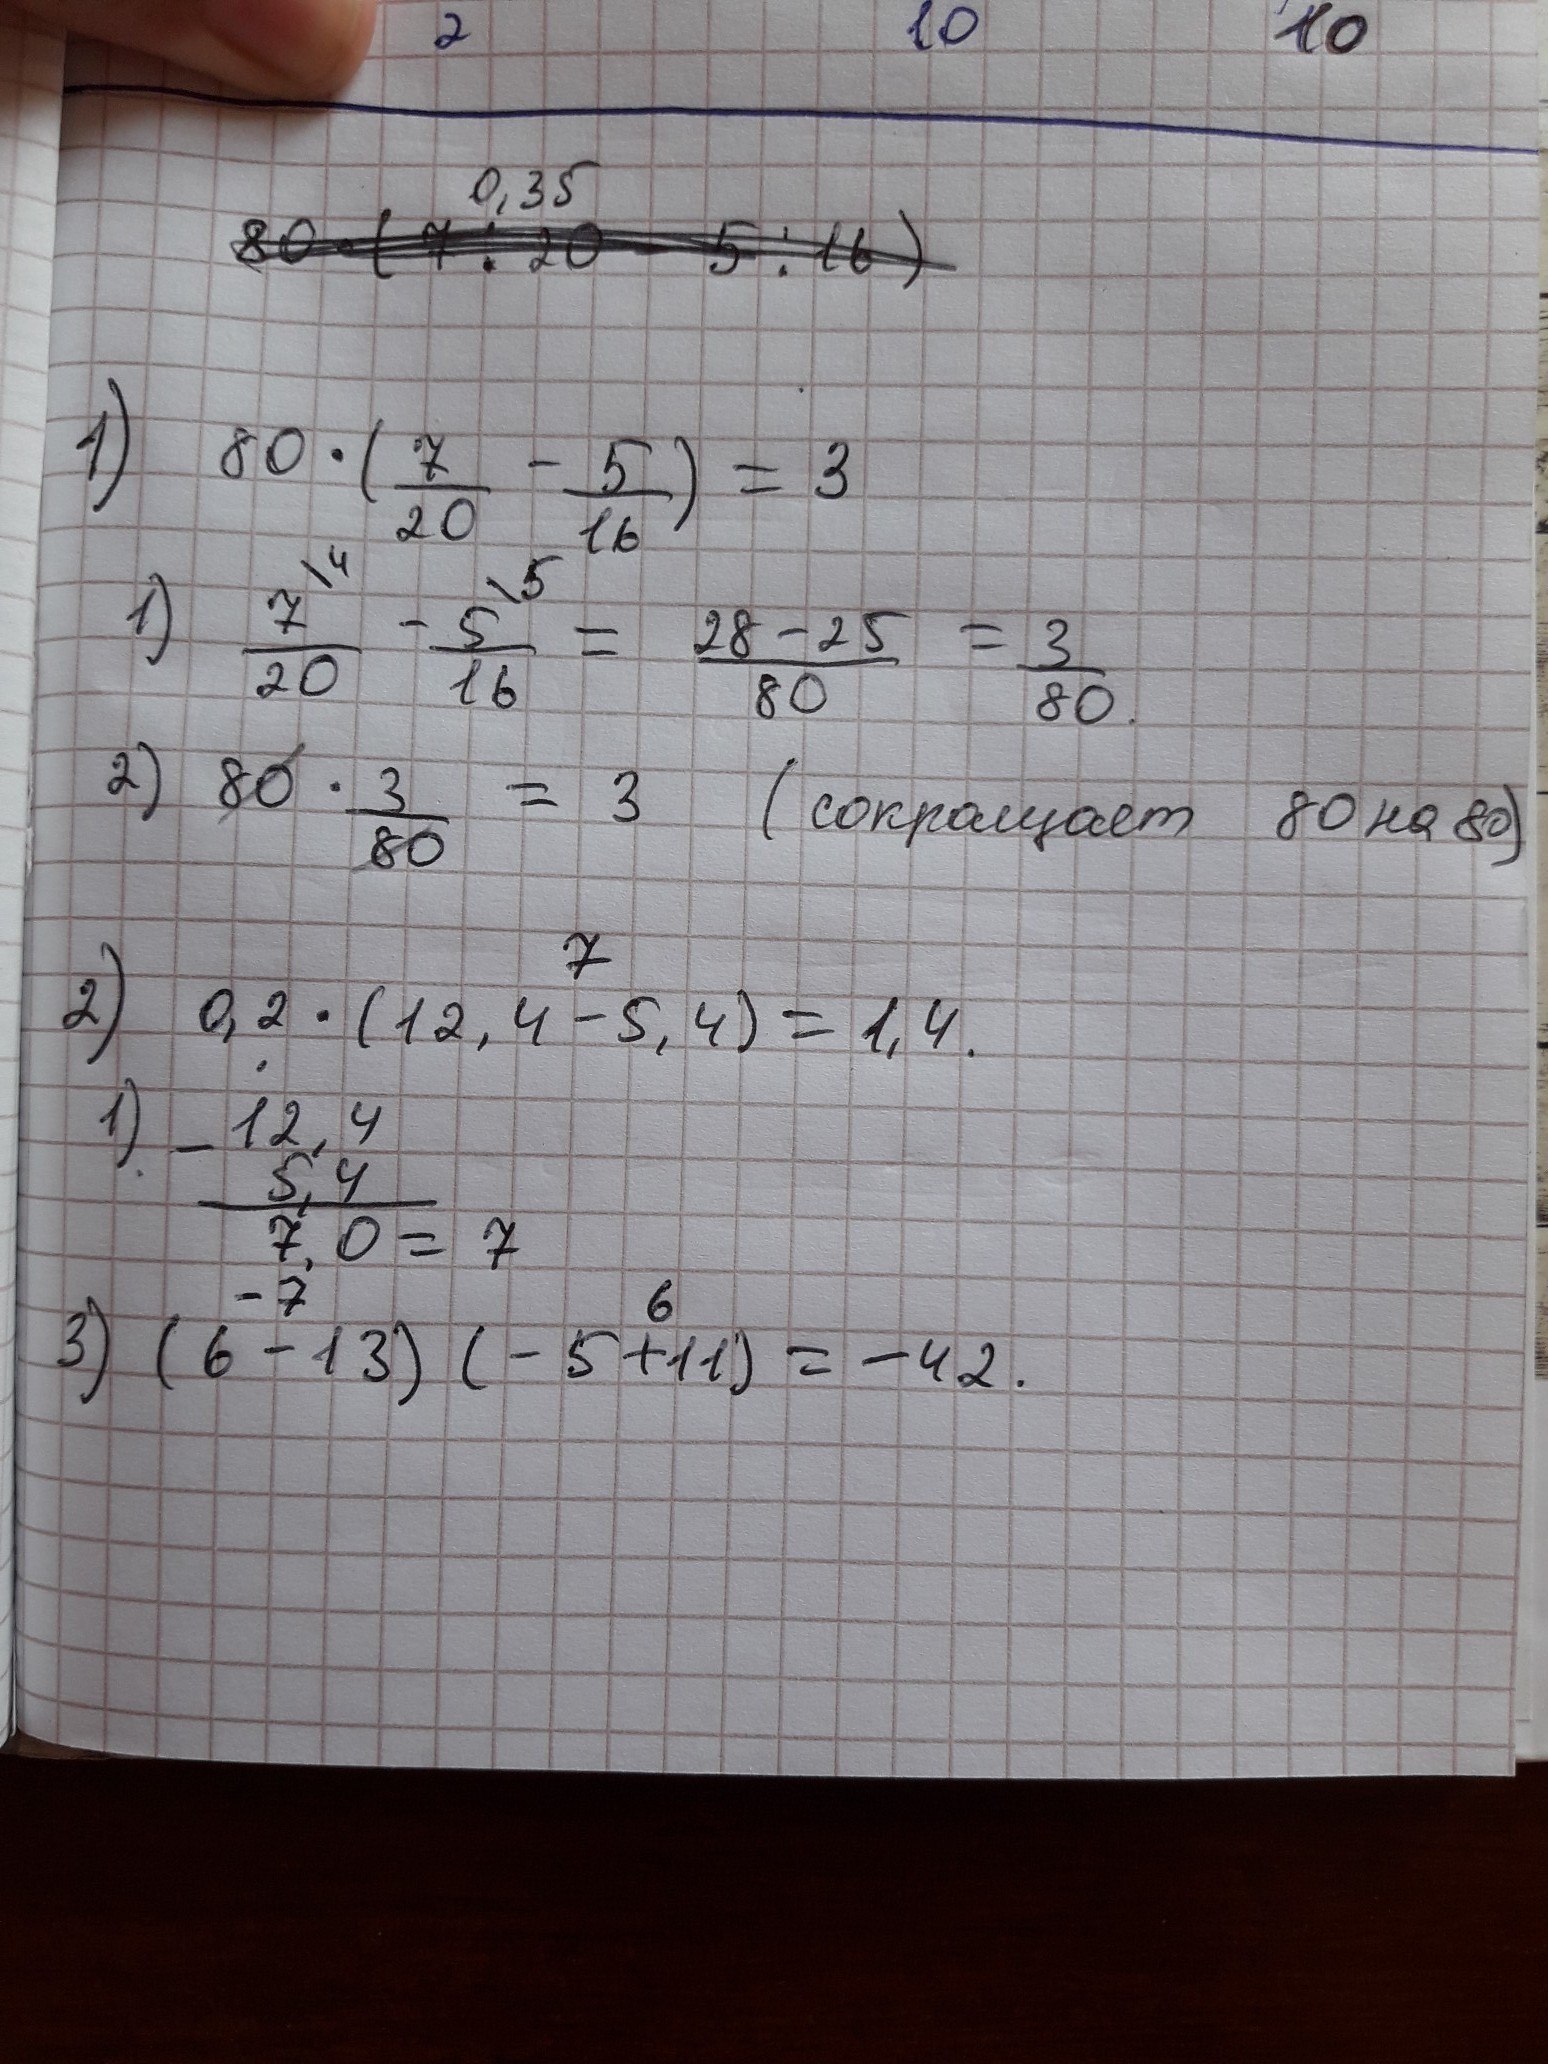 2 10 10
0,35
80·(7:20-5:16)
1) 80·(7/20 - 5/16) = 3
1) 7\4/20 - 5\5/16 = 28-25/80 = 3/80.
2) 80 · 3/80 = 3 (сокращает 80 на 80)
7
2) 0,2·(12,4-5,4) = 1,4.
1) - 12,4
5,4
7,0 = 7
-7 6
3) (6-13)(-5+11) = -42.